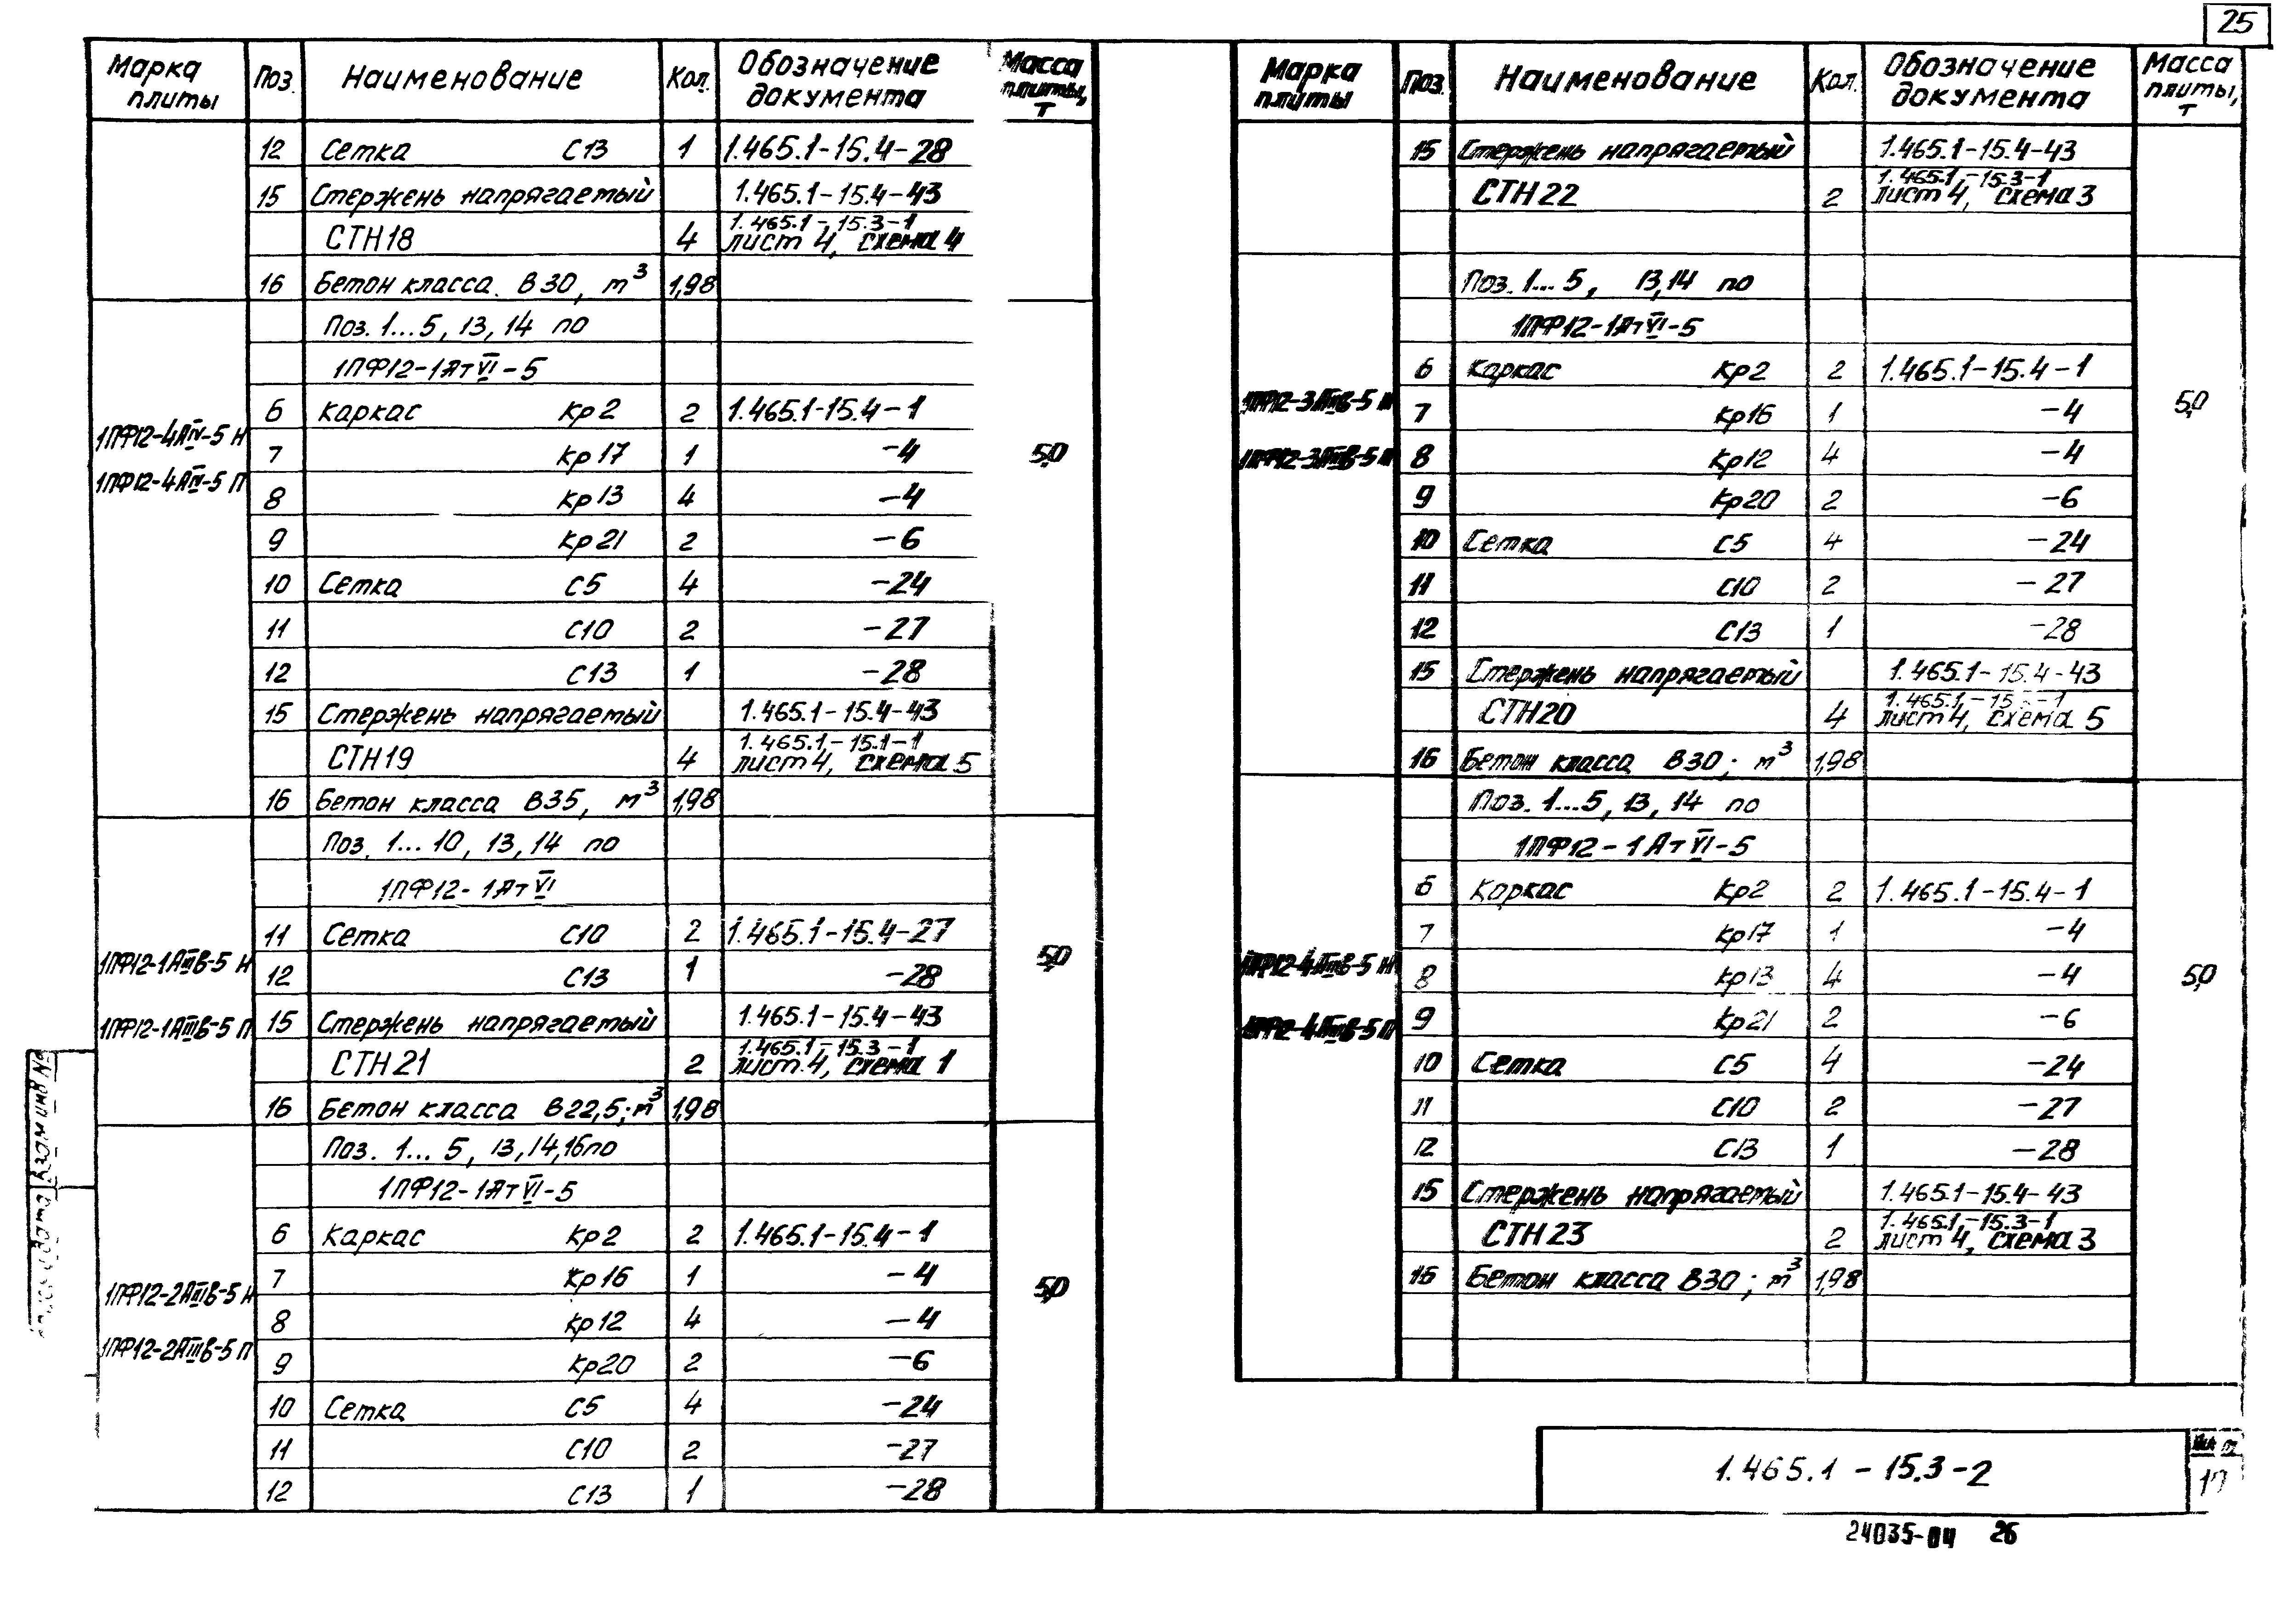 25
Марка плиты Поз. Наименование Кол. Обозначение документа Масса плиты, т
12 Сетка С13 1 1.465.1-15.4-28
15 Стержень напрягаемый 1.465.1-15.4-43
СТН18 4 1.465.1-15.3-1 лист 4, схема 4
16 Бетон класса В30, м³ 1,98
1ПФ12-4АIV-5 Н
1ПФ12-4АIV-5 П
5,0
Поз. 1...5, 13, 14 по
1ПФ12-1АтVI-5
6 Каркас Кр2 2 1.465.1-15.4-1
7 Кр17 1 -4
8 Кр13 4 -4
9 Кр21 2 -6
10 Сетка С5 4 -24
11 С10 2 -27
12 С13 1 -28
15 Стержень напрягаемый 1.465.1-15.4-43
СТН19 4 1.465.1-15.1-1 лист 4, схема 5
16 Бетон класса В35, м³ 1,98
1ПФ12-1АIIIв-5 Н
1ПФ12-1АIIIв-5 П
5,0
Поз. 1...10, 13, 14 по
1ПФ12-1АтVI
11 Сетка С10 2 1.465.1-15.4-27
12 С13 1 -28
15 Стержень напрягаемый 1.465.1-15.4-43
СТН21 2 1.465.1-15.3-1 лист 4, схема 1
16 Бетон класса В22,5; м³ 1,98
1ПФ12-2АIIIв-5 Н
1ПФ12-2АIIIв-5 П
5,0
Поз. 1...5, 13, 14, 16 по
1ПФ12-1АтVI-5
6 Каркас Кр2 2 1.465.1-15.4-1
7 Кр16 1 -4
8 Кр12 4 -4
9 Кр20 2 -6
10 Сетка С5 4 -24
11 С10 2 -27
12 С13 1 -28
Марка плиты Поз. Наименование Кол. Обозначение документа Масса плиты, т
15 Стержень напрягаемый 1.465.1-15.4-43
СТН22 2 1.465.1-15.3-1 лист 4, схема 3
1ПФ12-3АIIIв-5 Н
1ПФ12-3АIIIв-5 П
5,0
Поз. 1...5, 13,14 по
1ПФ12-1АтVI-5
6 Каркас Кр2 2 1.465.1-15.4-1
7 Кр16 1 -4
8 Кр12 4 -4
9 Кр20 2 -6
10 Сетка С5 4 -24
11 С10 2 -27
12 С13 1 -28
15 Стержень напрягаемый 1.465.1-15.4-43
СТН20 4 лист 4, схема 5
16 Бетон класса В30; м³ 1,98
1ПФ12-4АIIIв-5 Н
1ПФ12-4АIIIв-5 П
5,0
Поз. 1...5, 13, 14 по
1ПФ12-1АтVI-5
6 Каркас Кр2 2 1.465.1-15.4-1
7 Кр17 1 -4
8 Кр13 4 -4
9 Кр21 2 -6
10 Сетка С5 4 -24
11 С10 2 -27
12 С13 1 -28
15 Стержень напрягаемый 1.465.1-15.4-43
СТН23 2 1.465.1-15.3-1 лист 4, схема 3
16 Бетон класса В30; м³ 1,98
1.465.1-15.3-2
24035-04 26